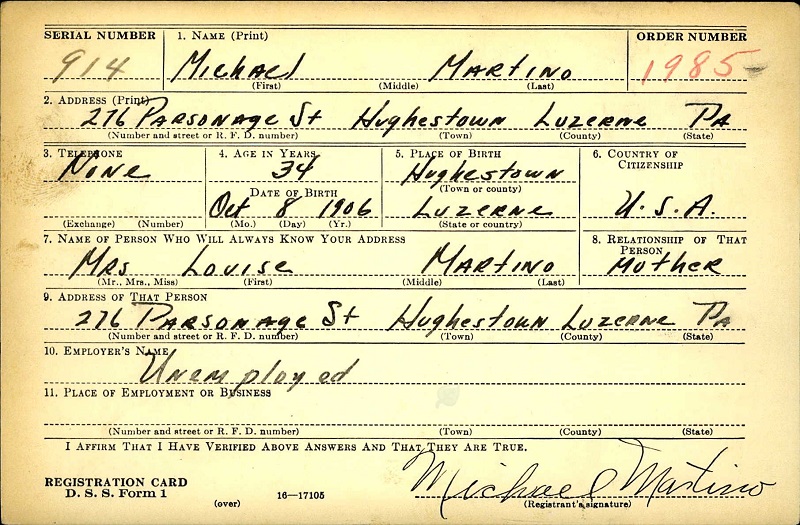 SERIAL NUMBER 1. NAME (Print) ORDER NUMBER
914 Michael Martino 1985
(First) (Middle) (Last)
2. ADDRESS (Print)
276 Parsonage St Hughestown Luzerne Pa
(Number and street or R. F. D. number) (Town) (County) (State)
3. TELEPHONE 4. AGE IN YEARS 5. PLACE OF BIRTH 6. COUNTRY OF CITIZENSHIP
None 34 Hughestown
(Town or county)
DATE OF BIRTH
Oct 8 1906 Luzerne U.S.A.
(Exchange) (Number) (Mo.) (Day) (Yr.) (State or country)
7. NAME OF PERSON WHO WILL ALWAYS KNOW YOUR ADDRESS 8. RELATIONSHIP OF THAT PERSON
Mrs Louise Martino Mother
(Mr., Mrs., Miss) (First) (Middle) (Last)
9. ADDRESS OF THAT PERSON
276 Parsonage St Hughestown Luzerne Pa
(Number and street or R. F. D. number) (Town) (County) (State)
10. EMPLOYER'S NAME
Unemployed
11. PLACE OF EMPLOYMENT OR BUSINESS
(Number and street or R. F. D. number) (Town) (County) (State)
I AFFIRM THAT I HAVE VERIFIED ABOVE ANSWERS AND THAT THEY ARE TRUE.
REGISTRATION CARD
D. S. S. Form 1 (over) 16—17105 Michael Martino
(Registrant's signature)